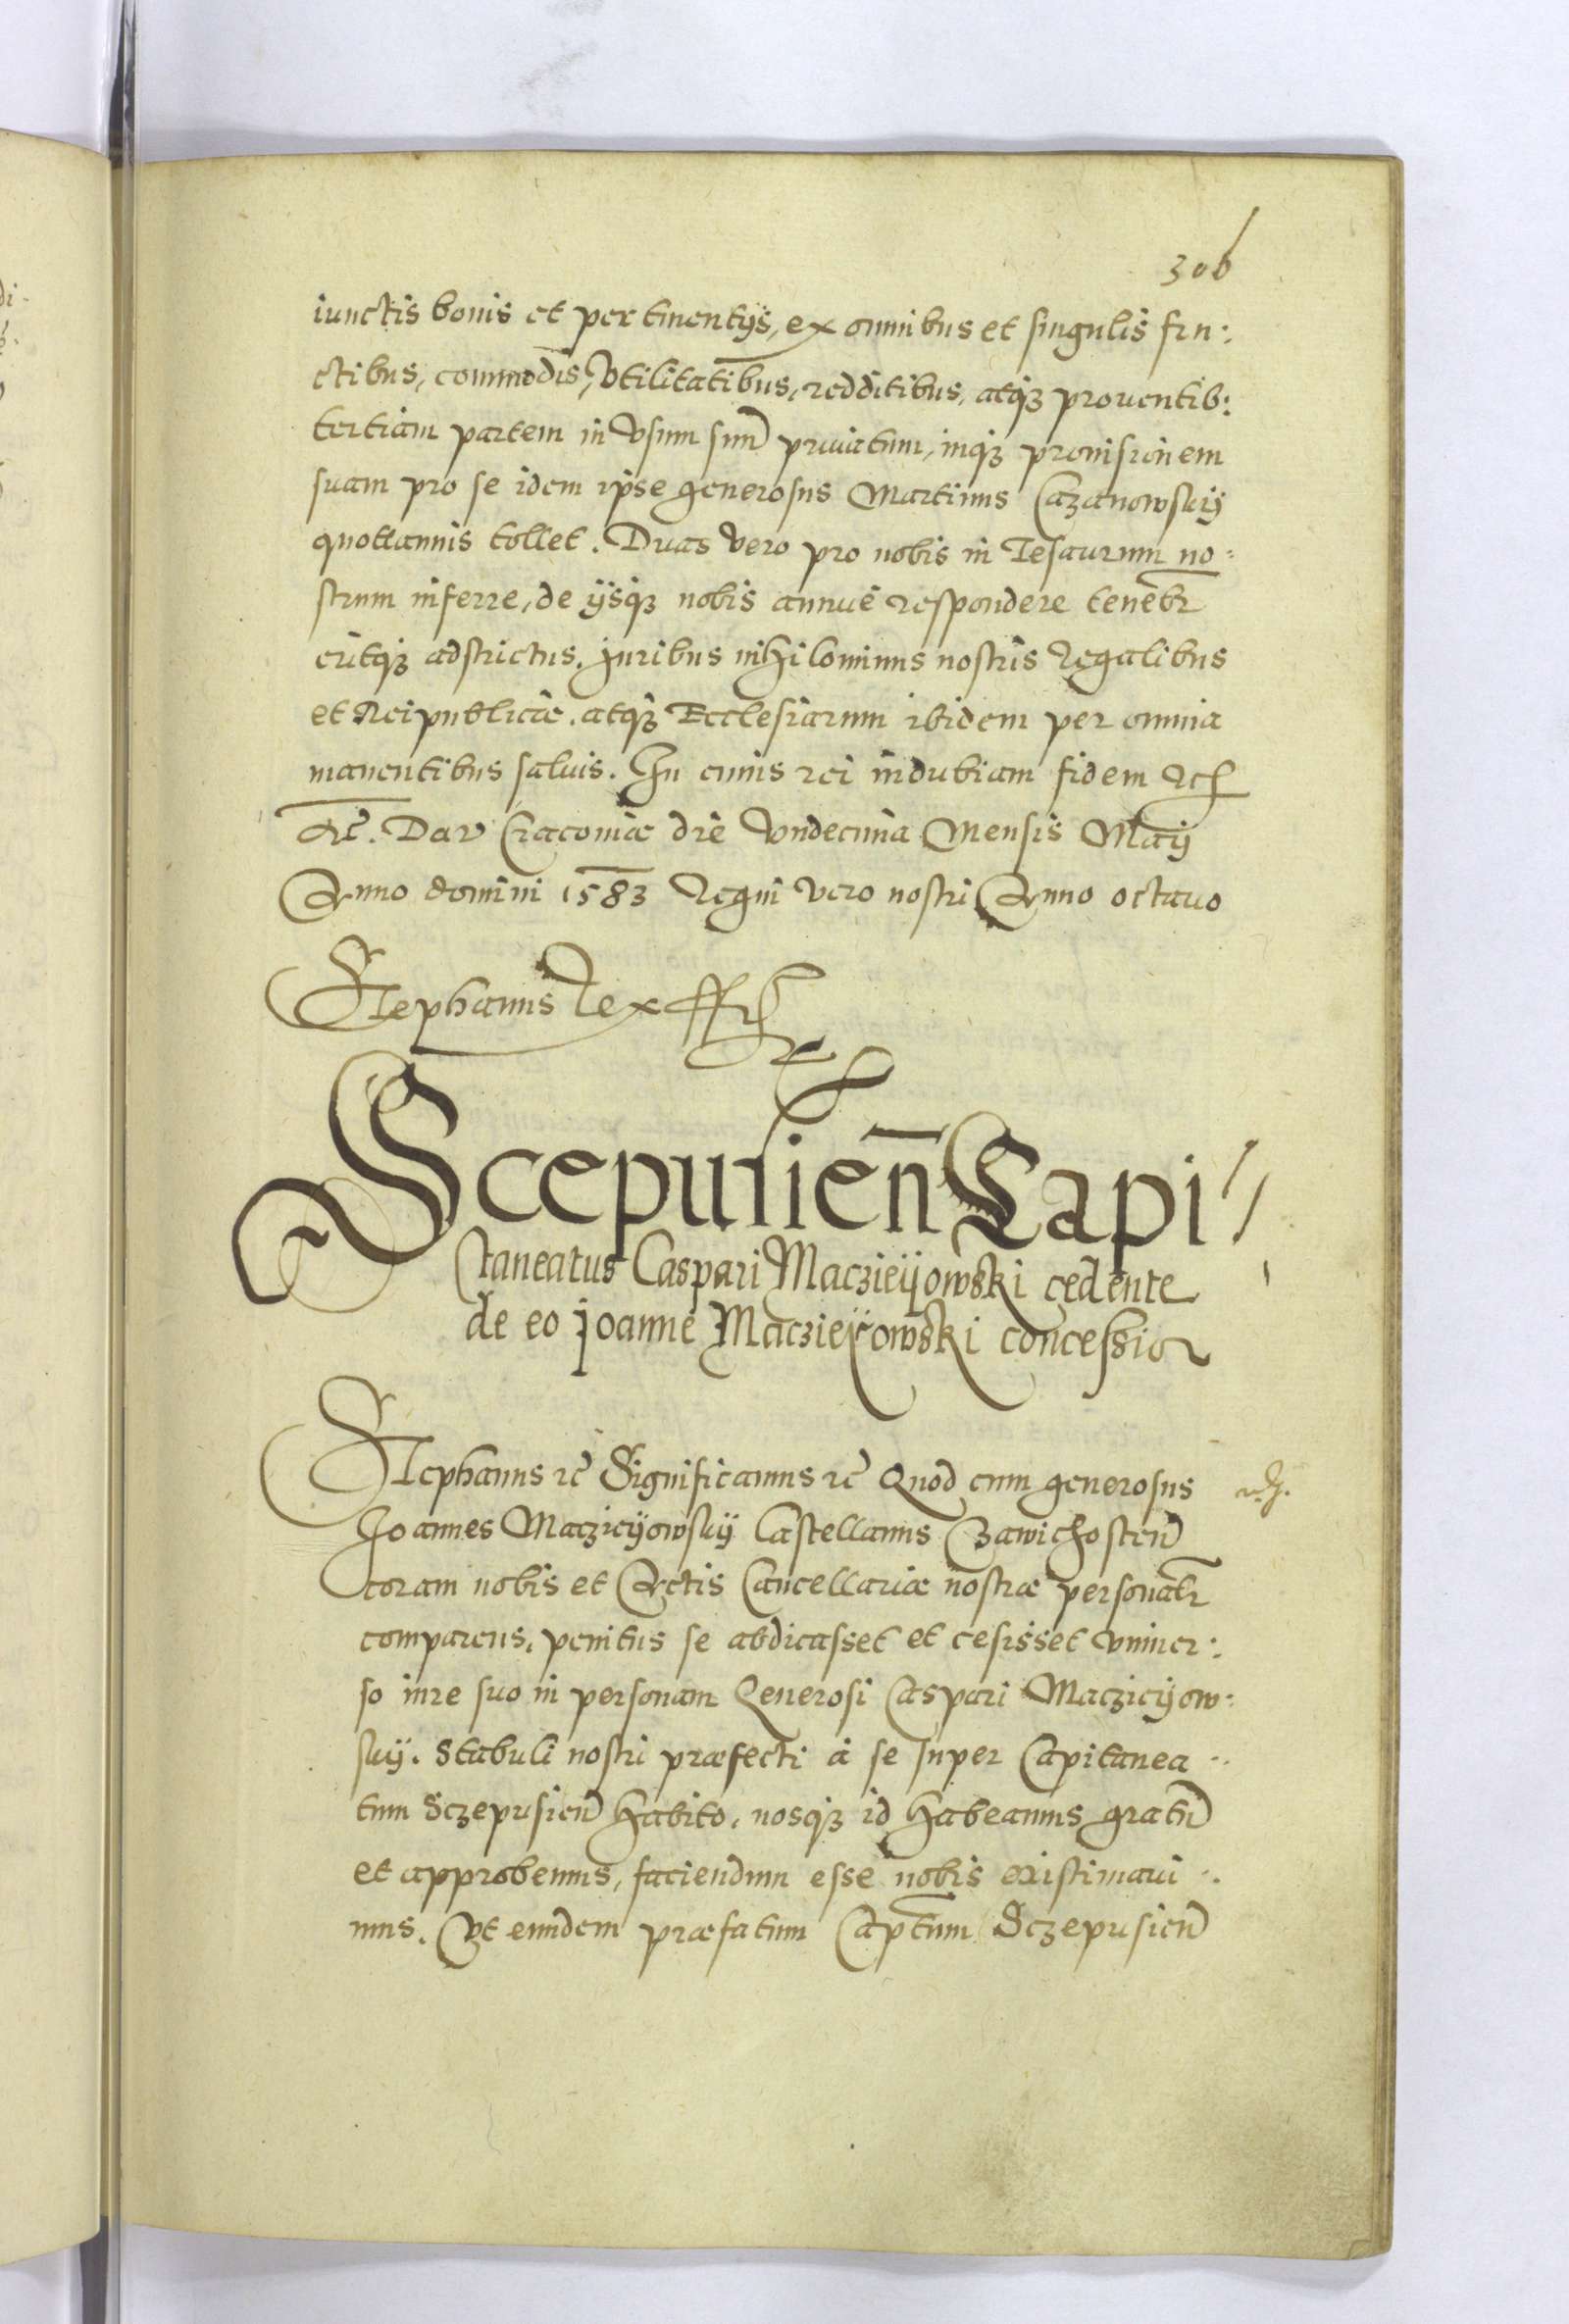 306
iunctis bonis et pertinentijs, ex omnibus et singulis fru:
ctibus, commodis, Vtilitatibus, redditibus, atq₃ prouentib:
tertiam partem in Vsum suū priuatum, inq₃ prouisionem
suam pro se idem ipse generosus Martinus Cazanowskij
quottannis tollet. Duas Vero pro nobis in Tesaurum no:
strum inferre, de ijsq₃ nobis annuè respondere tenebr
eritq₃ adstrictus. Juribus nihilominus nostris Regalibus
et Reipublicæ. atq₃ Ecclesiarum ibidem per omnia
manentibus saluis. In cuius rei indubiam fidem
Dat Cracoviæ die Vndecima Mensis Maij
Anno domini 1583 Regni Vero nostri Anno octauo
Stephanus Rex
Scepusieñ Capi
taneatus Caspari Maczieijowski cedente
de eo Joanne Maczieijowski concessio
Stephanus rc̄ Significamus rc̄ Quod cum generosus
Joannes Maczieijowskij Castellanus Zawichosteñ
coram nobis et Actis Cancellariæ nostræ personalr
comparens, penitus se abdicasset et cesisset vniuer:
so iure suo in personam Generosi Caspari Maczieijow:
skij. Stabuli nostri præfecti à se super Capitanea
tum Sczepusieñ habito, nosq₃ id habeamus gratū
et approbemus, faciendum esse nobis existimaui
mus. Vt eundem præfatum Captum Sczepusieñ